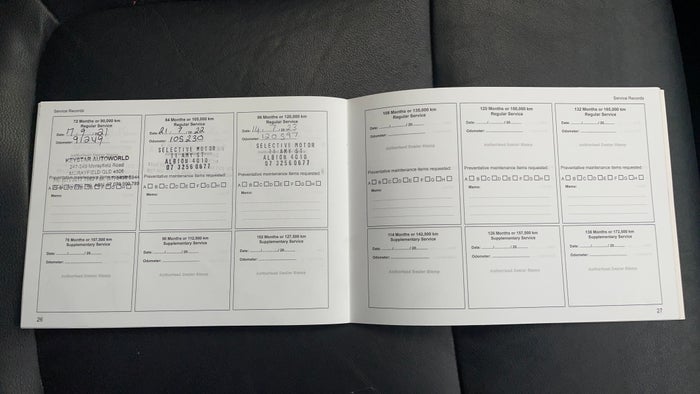 Service Records
72 Months or 90,000 km
Regular Service
Date 17 / 9 / 2021
Odometer 91349
KEYSTAR AUTOWORLD
Morayfield Road
MORAYFIELD QLD 4506
Preventative maintenance items requested:
Memo:
84 Months or 105,000 km
Regular Service
Date 21 / 9 / 2022
Odometer 105230
SELECTIVE MOTOR
ALBION 4010
07 32560677
Preventative maintenance items requested:
A B C D E F G H
Memo:
96 Months or 120,000 km
Regular Service
Date 14 / 7 / 2023
Odometer 120597
SELECTIVE MOTOR
ALBION 4010
07 32560677
Preventative maintenance items requested:
A B C D E F G H
Memo:
78 Months or 107,500 km
Supplementary Service
Date: / / 20
Odometer:
Authorised Dealer Stamp
90 Months or 112,500 km
Supplementary Service
Date: / / 20
Odometer:
Authorised Dealer Stamp
102 Months or 127,500 km
Supplementary Service
Date: / / 20
Odometer:
Authorised Dealer Stamp
26
Service Records
108 Months or 135,000 km
Regular Service
Date: / / 20
Odometer:
Authorised Dealer Stamp
Preventative maintenance items requested:
A B C D E F G H
Memo:
120 Months or 150,000 km
Regular Service
Date: / / 20
Odometer:
Authorised Dealer Stamp
Preventative maintenance items requested:
A B C D E F G H
Memo:
132 Months or 165,000 km
Regular Service
Date: / / 20
Odometer:
Authorised Dealer Stamp
Preventative maintenance items requested:
A B C D E F G H
Memo:
114 Months or 142,500 km
Supplementary Service
Date: / / 20
Odometer:
Authorised Dealer Stamp
126 Months or 157,500 km
Supplementary Service
Date: / / 20
Odometer:
Authorised Dealer Stamp
138 Months or 172,500 km
Supplementary Service
Date: / / 20
Odometer:
Authorised Dealer Stamp
27